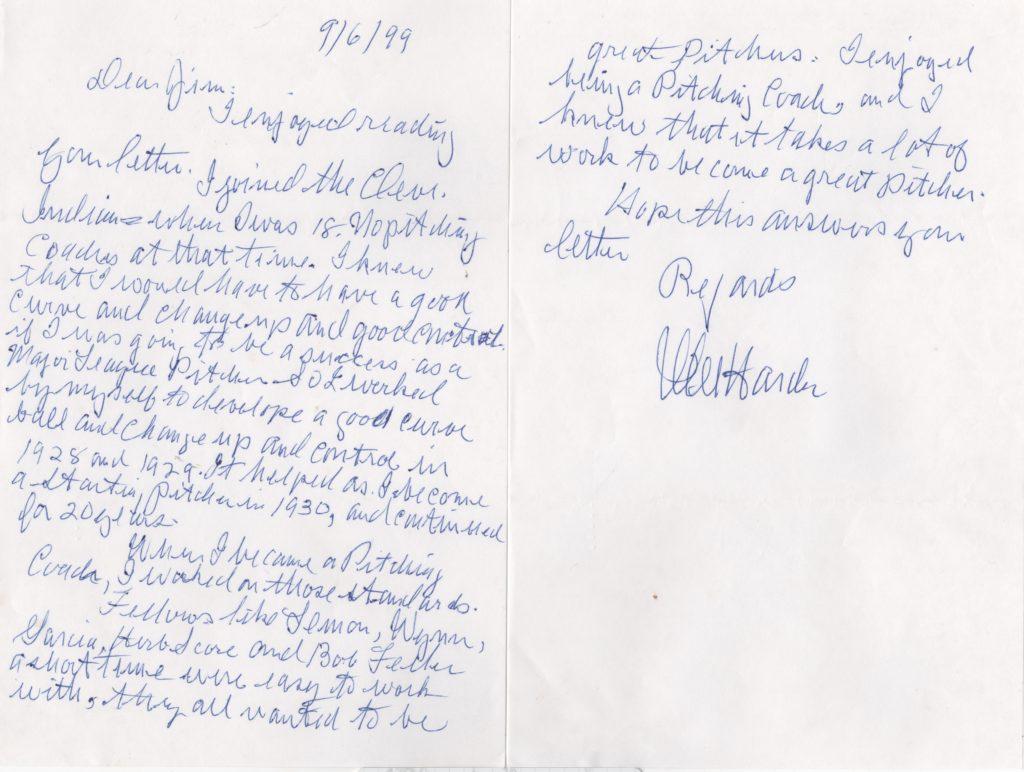 9/6/99
Dear Jim:
I enjoyed reading
your letter.
I joined the Cleve.
Indians when I was 18. No pitching
Coaches at that time. I knew
that I would have to have a good
curve and change up and good control.
if I was going to be a success as a
Major League Pitcher. SO I worked
by myself to develope a good curve
ball and change up and control in
1928 and 1929. It helped as I become
a starting Pitcher in 1930, and continued
for 20 years.
When I became a Pitching
Coach, I worked on those standards.
Fellows like Lemon, Wynn,
Garcia, Herb Score and Bob Feller
a short time were easy to work
with, they all wanted to be
great Pitchers. I enjoyed
being a Pitching Coach, and I
knew that it takes a lot of
work to become a great pitcher.
Hope this answers your
letter
Regards
Mel Harder